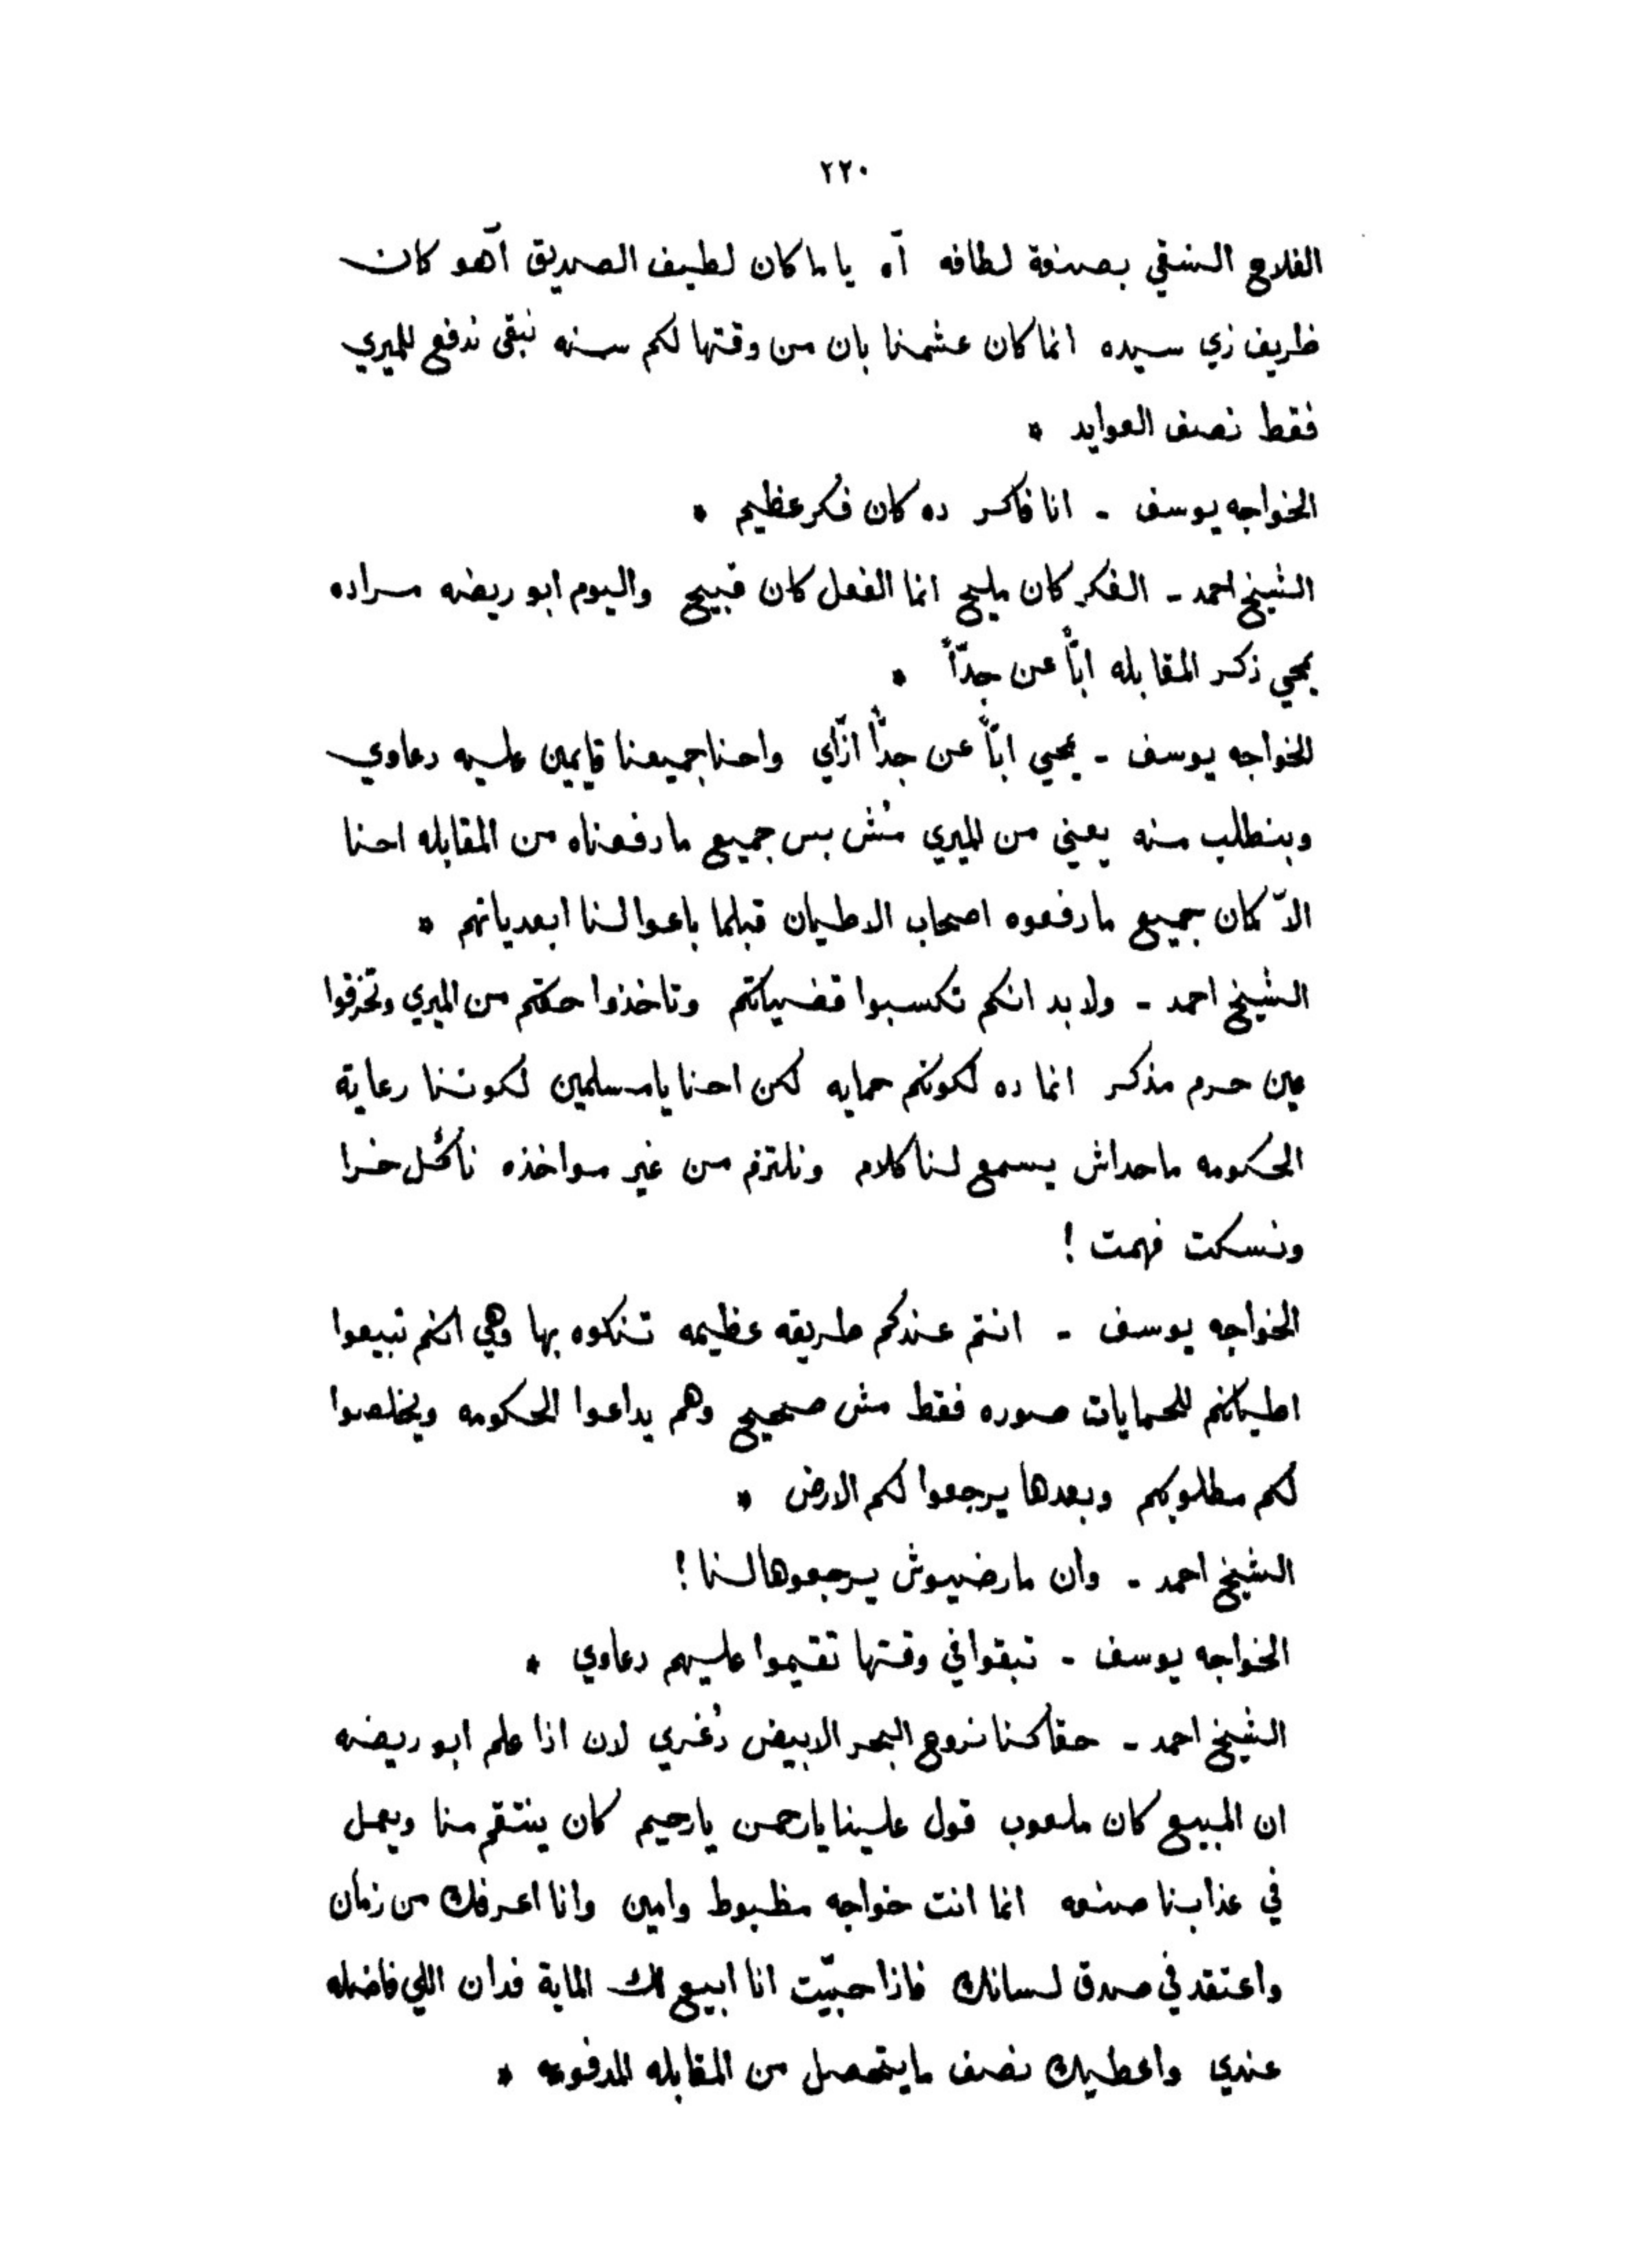 ٢٢٠
الفلاح الشقي بصنعة لطافه آه ياما كان لطيف الصديق آهو كان
ظريف زي سيده انما كان عشمنا بان من وقتها لكم سنه نبقى ندفع للميري
فقط نصف العوايد *
الخواجه يوسف - انا فاكر ده كان فكر عظيم *
الشيخ احمد - الفكر كان مليح انما الفعل كان قبيح واليوم ابو ريضه مراده
يمحي ذكر المقابله ابّاً عن جدّاً *
الخواجه يوسف - يمحي ابّاً عن جدّاً ازّاي واحنا جميعنا قايمين عليه دعاوي
وبنطلب منه يعني من الميري مُش بس جميع ما دفعناه من المقابله احنا
الاّ كمان جميع ما دفعوه اصحاب الاطيان قبلما باعوا لنا ابعدياتهم *
الشيخ احمد - ولا بد انكم تكسبوا قضيتكم وتاخذوا حقكم من الميري وتخزقوا
عين حرم مذكر انما ده لكونكم حمايه لكن احنا يا مسلمين لكوننا رعاية
الحكومه ماحداش يسمع لنا كلام ونلتزم من غير مواخذه نأكُل خرا
ونسكت فهمت !
الخواجه يوسف - انتم عندكم طريقه عظيمه تنكوه بها وهي انكم تبيعوا
اطيانكم للحمايات صوره فقط مش صحيح وهم يداعوا الحكومه ويخلصوا
لكم مطلوبكم وبعدها يرجعوا لكم الارض *
الشيخ احمد - وان مارضيوش يرجعوها لنا !
الخواجه يوسف - تبقوا في وقتها تقيموا عليهم دعاوي *
الشيخ احمد - حقا كنا نروح البحر الابيض دُغري لان اذا علم ابو ريضه
ان المبيع كان ملعوب قول علينا يا رحمن يا رحيم كان ينتقم منا ويعمل
في عذابنا صنعه انما انت خواجه مظبوط وامين وانا اعرفك من زمان
واعتقد في صدق لسانك فاذا حبّيت انا ابيع لك الماية فدان اللي فاضله
عندي واعطيك نصف ما يتحصل من المقابله المدفوعه *